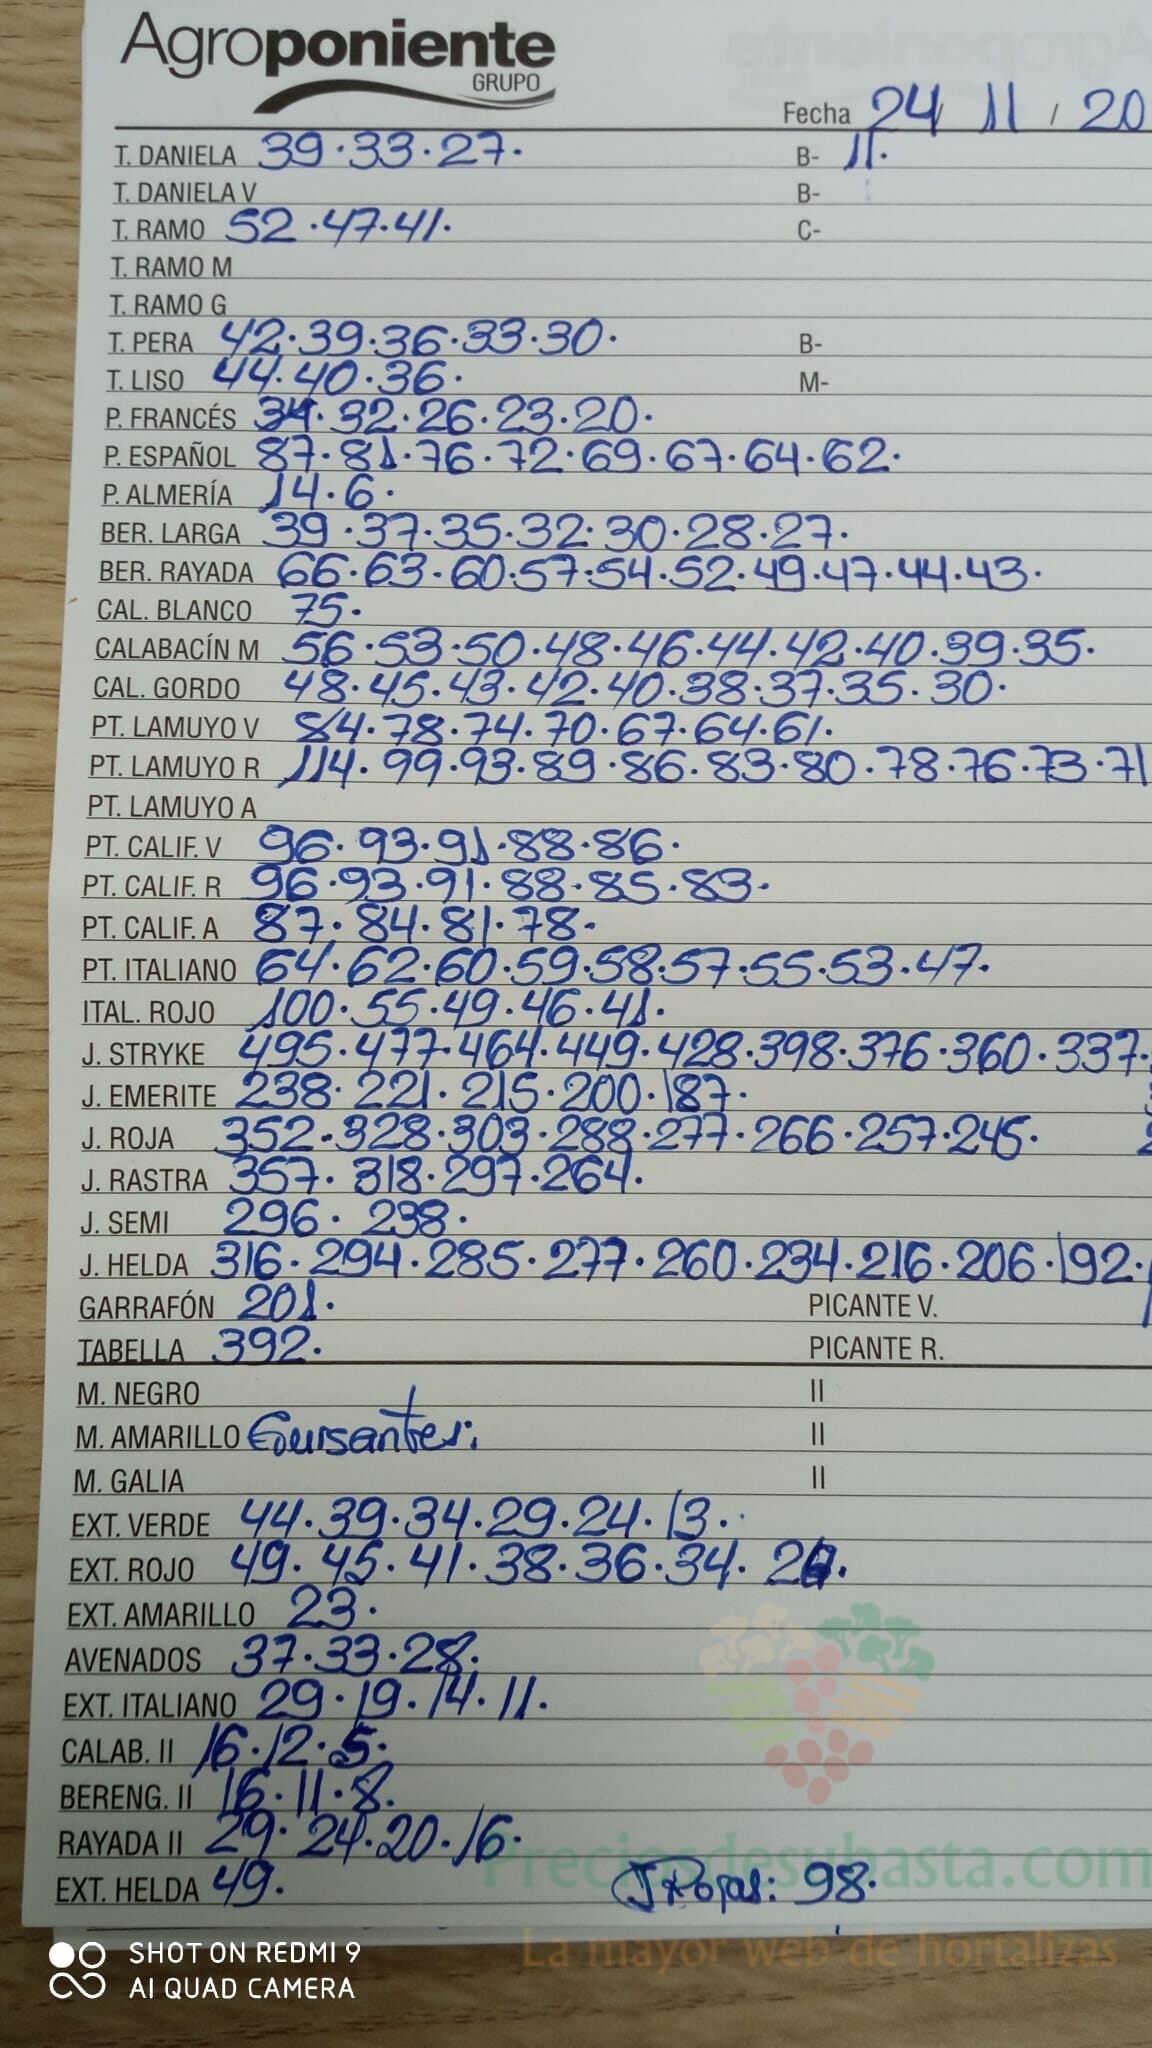 Agroponiente
GRUPO
Fecha 24 / 11 / 20
T. DANIELA 39·33·27· B- 11·
T. DANIELA V B-
T. RAMO 52·47·41· C-
T. RAMO M
T. RAMO G
T. PERA 42·39·36·33·30· B-
T. LISO 44·40·36· M-
P. FRANCÉS 34·32·26·23·20·
P. ESPAÑOL 87·81·76·72·69·67·64·62·
P. ALMERÍA 14·6·
BER. LARGA 39·37·35·32·30·28·27·
BER. RAYADA 66·63·60·57·54·52·49·47·44·43·
CAL. BLANCO 75·
CALABACÍN M 56·53·50·48·46·44·42·40·39·35·
CAL. GORDO 48·45·43·42·40·38·37·35·30·
PT. LAMUYO V 84·78·74·70·67·64·61·
PT. LAMUYO R 114·99·93·89·86·83·80·78·76·73·71
PT. LAMUYO A
PT. CALIF. V 96·93·91·88·86·
PT. CALIF. R 96·93·91·88·85·83·
PT. CALIF. A 87·84·81·78·
PT. ITALIANO 64·62·60·59·58·57·55·53·47·
ITAL. ROJO 100·55·49·46·41·
J. STRYKE 495·477·464·449·428·398·376·360·337·
J. EMERITE 238·221·215·200·187·
J. ROJA 352·328·303·288·277·266·257·245·
J. RASTRA 357·318·297·264·
J. SEMI 296·238·
J. HELDA 316·294·285·277·260·234·216·206·192·
GARRAFÓN 201· PICANTE V.
TABELLA 392· PICANTE R.
M. NEGRO II
M. AMARILLO Guisantes: II
M. GALIA II
EXT. VERDE 44·39·34·29·24·13·
EXT. ROJO 49·45·41·38·36·34·
EXT. AMARILLO 23·
AVENADOS 37·33·28·
EXT. ITALIANO 29·19·14·11·
CALAB. II 16·12·5·
BERENG. II 16·11·8·
RAYADA II 29·24·20·16·
Preciosdesubasta.com
EXT. HELDA 49· J Rojas: 98·
La mayor web de hortalizas
SHOT ON REDMI 9
AI QUAD CAMERA